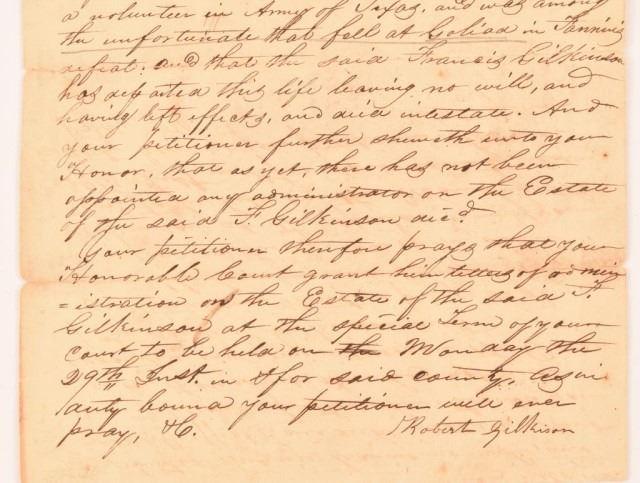 a volunteer in Army of Texas, and was among
the unfortunate that fell at Goliad in Fannins
defeat. and that the said Francis Gilkinson
has departed this life leaving no will, and
having left effects, and died intestate. And
your petitioner further sheweth unto your
Honor, that as yet, there has not been
appointed any administrator on the Estate
of the said F. Gilkinson dec'd.
Your petitioner therefore prays that your
Honorable Court grant him letters of admin
=istration on the Estate of the said F.
Gilkinson at the special Term of your
court to be held on the Monday the
29th Inst. in & for said county. As in
duty bound your petitioner will ever
pray, &C. Robert Gilkison